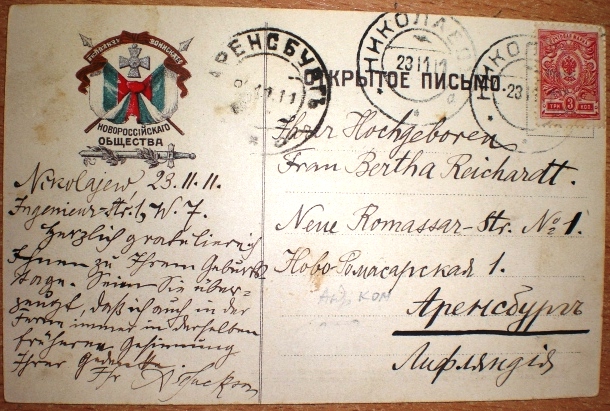 ВОИНСКАГО
НОВОРОССІЙСКАГО
ОБЩЕСТВА
АРЕНСБУРГЪ
11.11
НИКОЛАЕВ
23 11 11
НИКОЛ
23
ОТКРЫТОЕ ПИСЬМО.
3 КОП
Nikolajew 23.11.11.
Ingenieur-Str. 1, W. 7.
Herzlich gratuliere ich
Ihnen zu Ihrem Geburts
tage. Seien Sie über-
zeugt, daß ich auch in der
Ferne immer in derselben
früheren Gesinnung
Ihrer Gedenke.
Ihr A. Jackson
Ihrer Hochgeboren
Frau Bertha Reichardt.
Neue Romassar-Str. № 1.
Ново-Ромасарская 1.
Аренсбургъ
Лифляндія